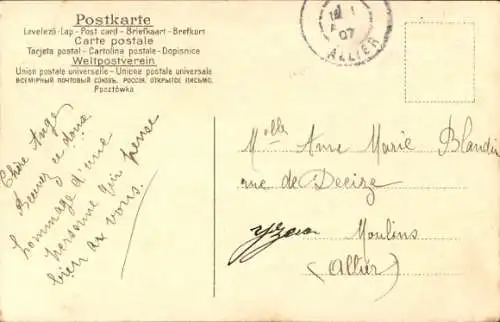 Postkarte
Levelező-Lap - Post card - Briefkaart - Brefkort
Carte postale
Tarjeta postal - Cartolina postale - Dopisnice
Weltpostverein
Union postale universelle - Unione postale universale
ВСЕМІРНЫЙ ПОЧТОВЫЙ СОЮЗЪ. РОССІЯ. ОТКРЫТОЕ ПИСЬМО.
Pocztówka
07
ALLIER
Chère Ange
ce doux
hommage d'une
personne qui pense
bien à vous.
Melle Anne Marie Blandin
rue de Decize
Yzeure
Moulins
(Allier)